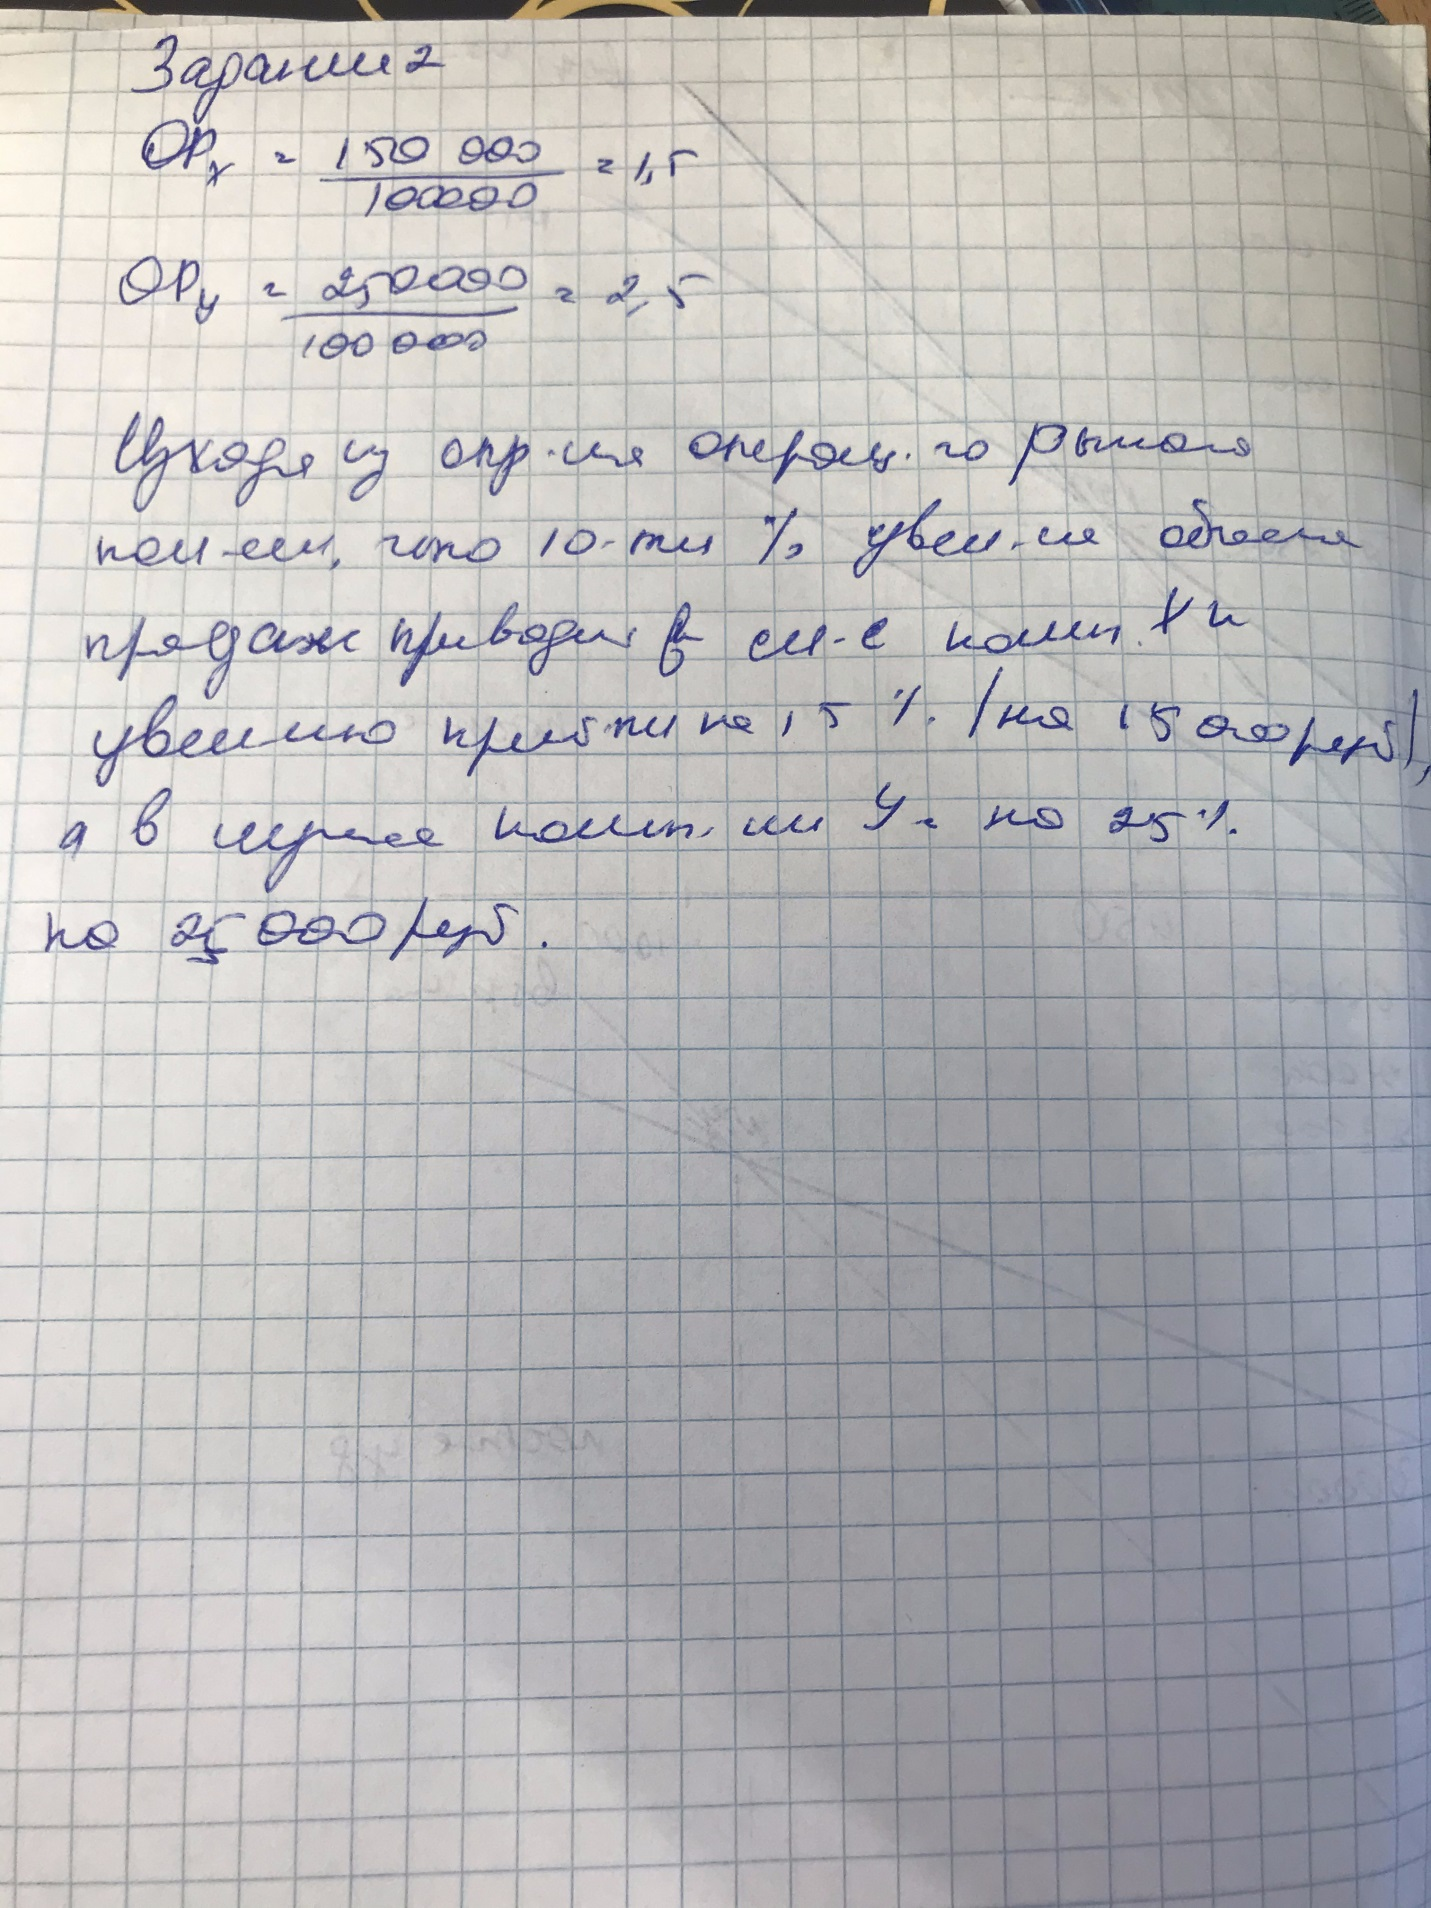 Задание 2
ОРx = 150 000 / 100000 = 1,5
ОРу = 250000 / 100 000 = 2,5
Исходя из опр-ия операц-го рычага
пол-ем, что 10-ти % увел-ие объема
продаж приводит в сл-е комп. Х к
увел-ию прибыли на 15 % (на 15 000 руб),
а в случае комп-ии У - на 25 %.
на 25 000 руб.